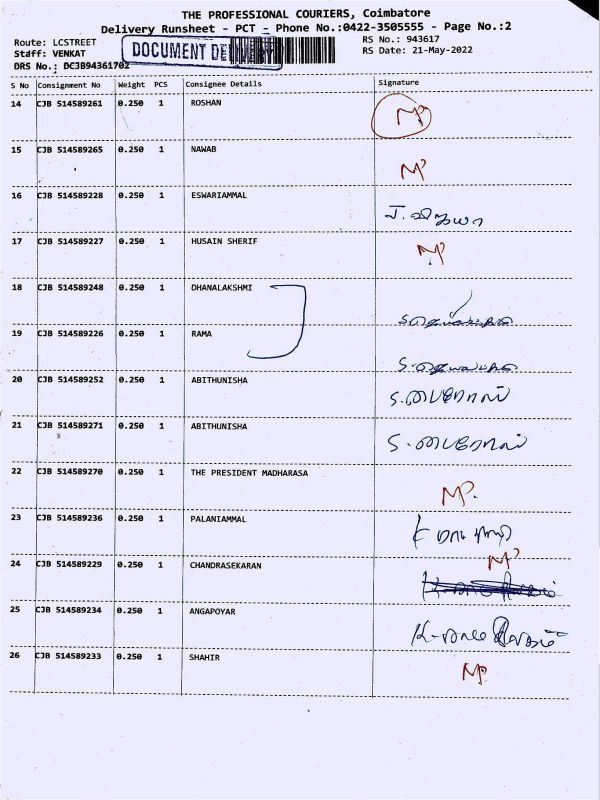 THE PROFESSIONAL COURIERS, Coimbatore
Delivery Runsheet - PCT - Phone No.:0422-3505555 - Page No.:2
Route: LCSTREET
RS No.: 943617
Staff: VENKAT
DOCUMENT DE
RS Date: 21-May-2022
DRS No.: DCJB94361702
S No Consignment No Weight PCS Consignee Details Signature
14 CJB 514589261 0.250 1 ROSHAN NP
15 CJB 514589265 0.250 1 NAWAB NP
16 CJB 514589228 0.250 1 ESWARIAMMAL
17 CJB 514589227 0.250 1 HUSAIN SHERIF NP
18 CJB 514589248 0.250 1 DHANALAKSHMI
19 CJB 514589226 0.250 1 RAMA
20 CJB 514589252 0.250 1 ABITHUNISHA
21 CJB 514589271 0.250 1 ABITHUNISHA
22 CJB 514589270 0.250 1 THE PRESIDENT MADHARASA NP.
23 CJB 514589236 0.250 1 PALANIAMMAL
24 CJB 514589229 0.250 1 CHANDRASEKARAN NP
25 CJB 514589234 0.250 1 ANGAPOYAR
26 CJB 514589233 0.250 1 SHAHIR NP